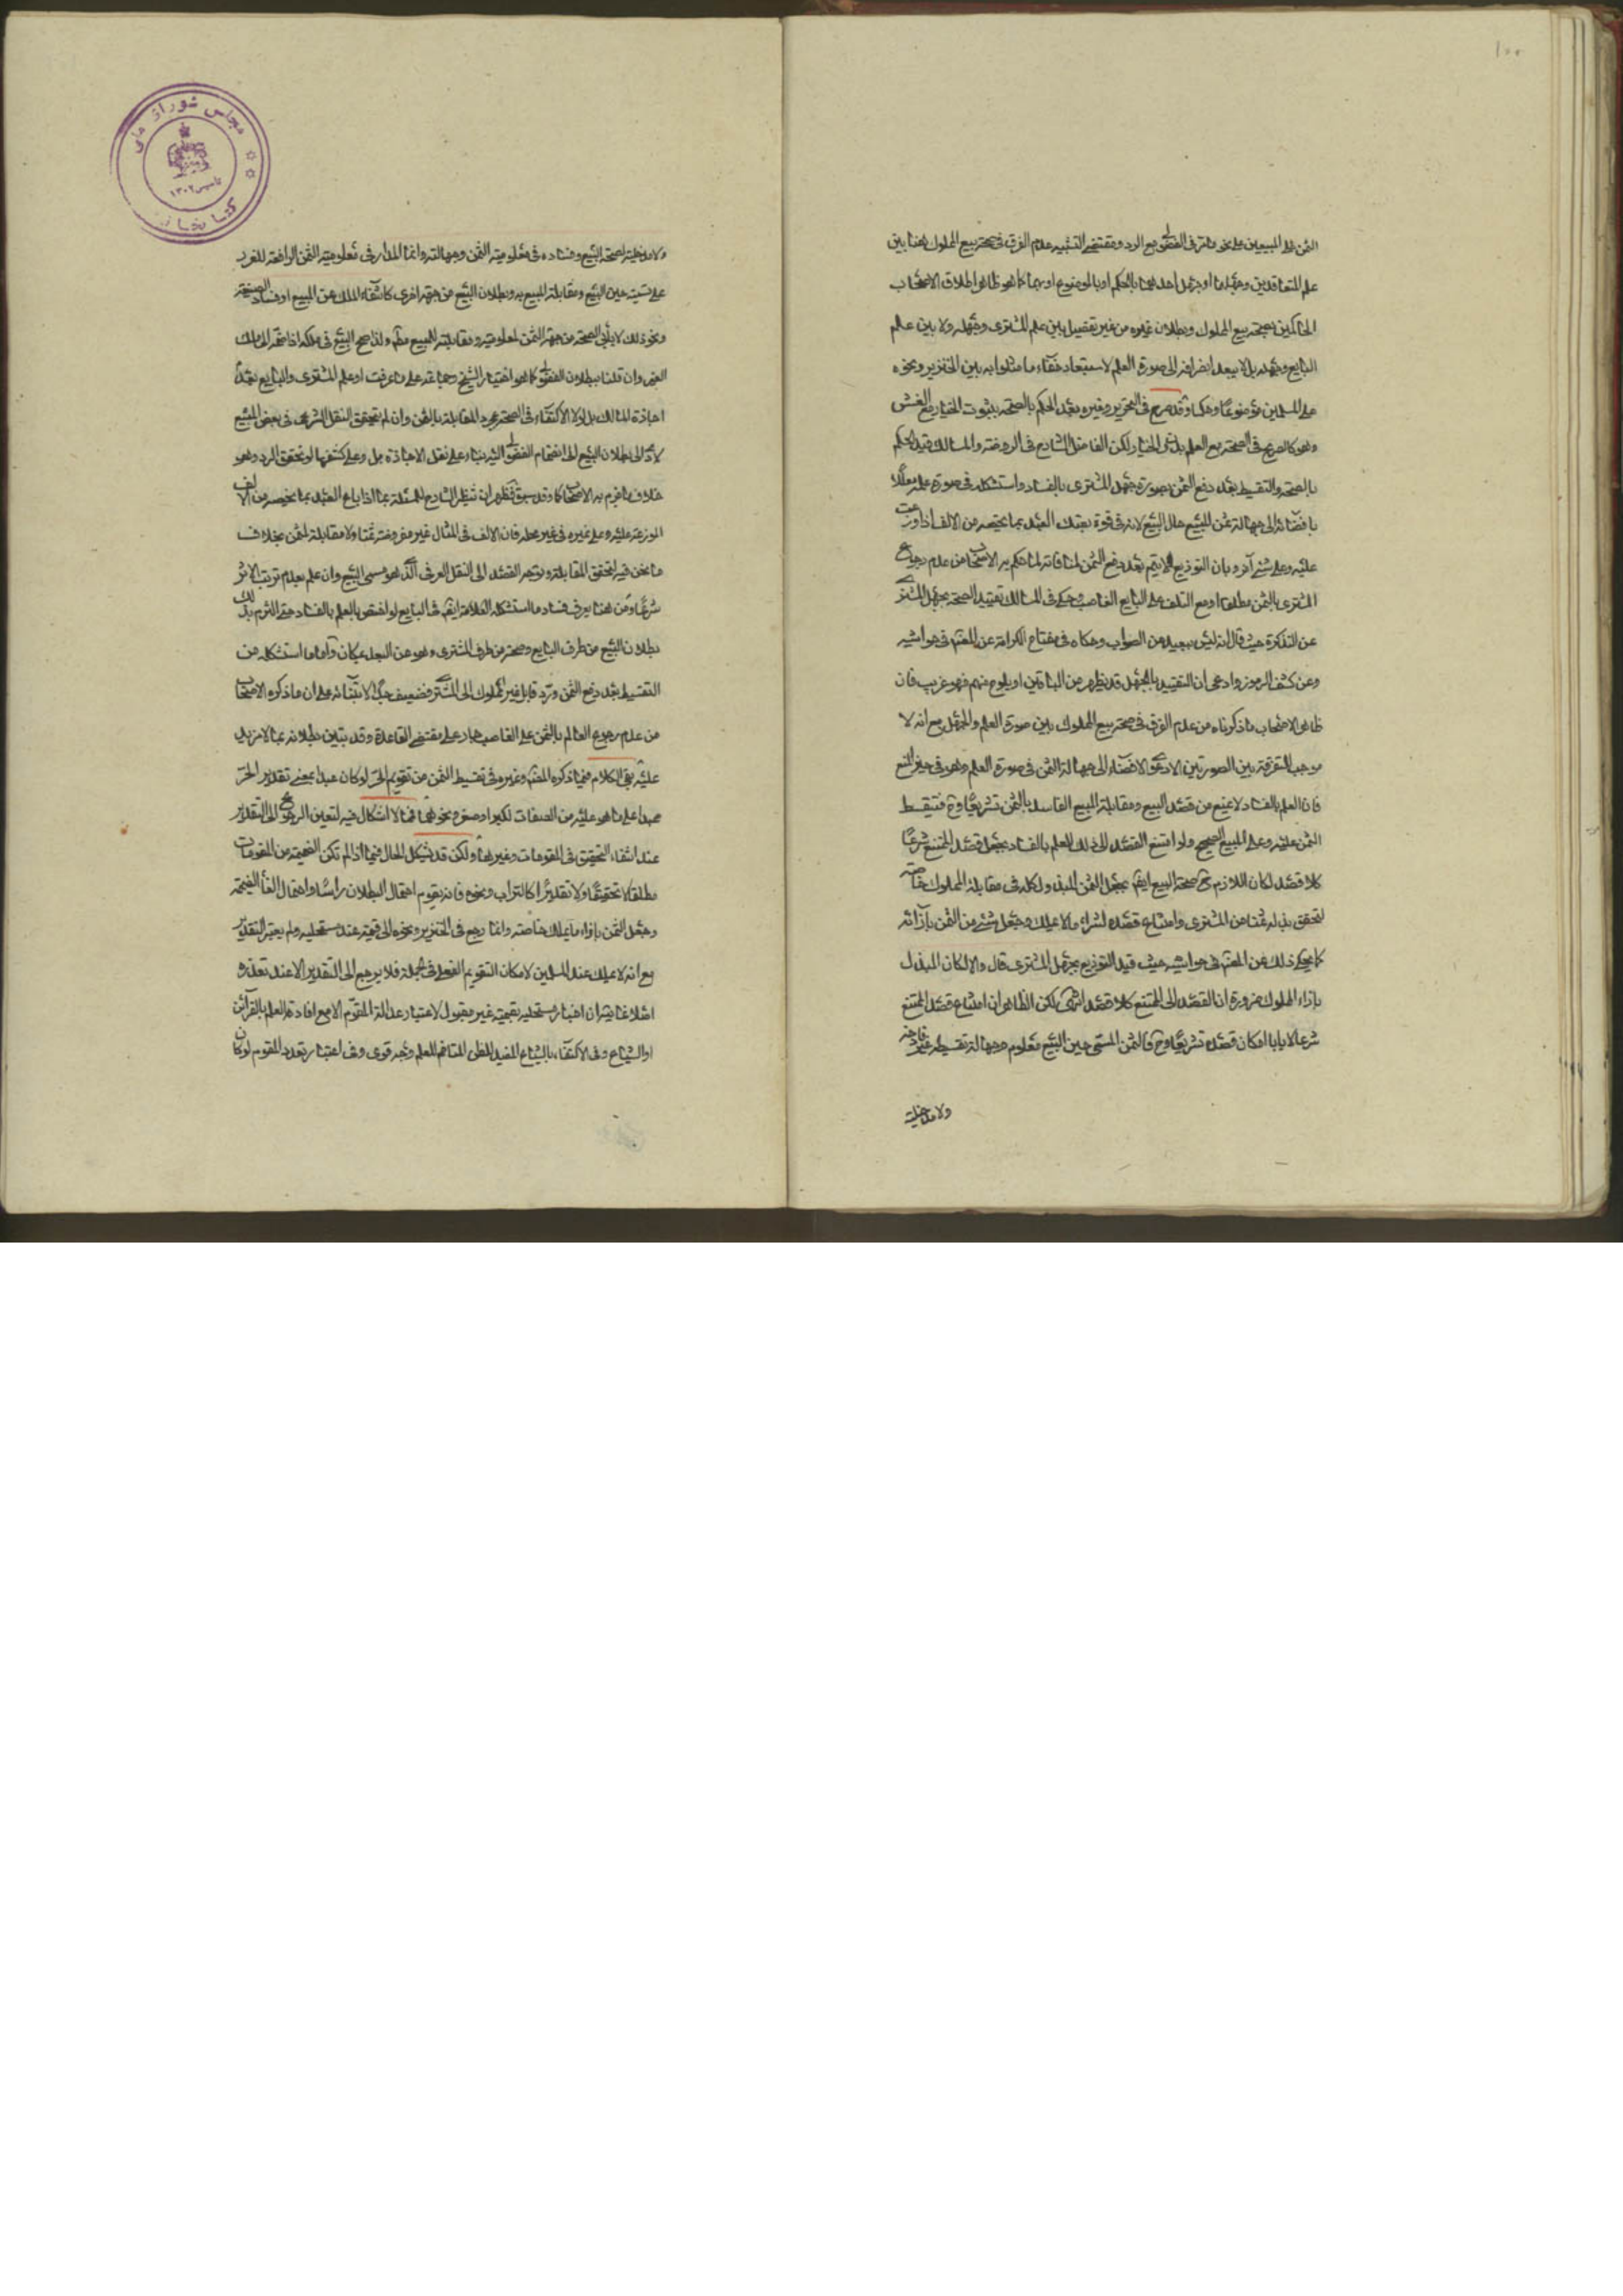 ١٠٠
الثمن على المبيعين على نحو ما مر فى الفضولى مع الرد ومقتضى التشبيه عدم الفرق فى صحة بيع المملوك هنا بين
علم المتعاقدين وجهلهما او جهل احدهما بالحكم او بالموضوع او بهما كما هو ظاهر اطلاق الاصحاب
الحاكمين بصحة بيع المملوك وبطلان غيره من غير تفصيل بين علم المشترى وجهله ولا بين علم
البايع وجهله بل لا يبعد انصرافه الى صورة العلم لاستبعاد خفاء ما مثلوا به بين الخنزير ونحوه
على المسلمين موضوعًا وحكمًا وقد صرح فى التحرير وغيره بعد الحكم بالصحة بثبوت الخيار مع الغش
وهو كالصريح فى الصحة مع العلم بدون الخيار لكن الفاضل الشارح فى الروضة والمسالك قيد الحكم
بالصحة والتقسيط بعد دفع الثمن بصورة جهل المشترى بالفساد واستشكله فى صورة علمه معللًا
بافضائه الى جهالة ثمن المبيع حال البيع لانه فى قوة بعتك العبد بما يخصه من الالف اذا وزعت
عليه وعلى شئ آخر وبان التوزيع لا يتم بعد دفع الثمن لمنافاته لما حكم به الاصحاب من عدم رجوع
المشترى بالثمن مطلقا او مع التلف على البايع الغاصب وحكى فى المسالك تقييد الصحة بجهل المشترى
عن التذكرة حيث قال انه ليس ببعيد من الصواب وحكاه فى مفتاح الكرامة عن المصنف فى حواشيه
وعن كشف الرموز وادعى ان التقييد بالجهل قد يظهر من الباقين او يلوح منهم فهو غريب فان
ظاهر الاصحاب ما ذكرناه من عدم الفرق فى صحة بيع المملوك بين صورة العلم والجهل مع انه لا
موجب للتفرقة بين الصورتين الا دعوى الافضاء الى جهالة الثمن فى صورة العلم وهو فى حيز المنع
فان العلم بالفساد لا يمنع من قصد البيع ومقابلة المبيع الفاسد بالثمن تشريعًا وح فتقسط
الثمن عليه وعلى المبيع الصحيح ولو امتنع القصد الى ذلك للعلم بالفساد بجعل قصد الممتنع شرعًا
كلا قصد لكان اللازم ح صحة البيع ايضا بجعل الثمن المبذول كله فى مقابلة المملوك خاصة
لتحقق بذله ثمنا من المشترى وامتناع قصده لشراء ما لا يملك وجعل شئ من الثمن بازائه
كما يحكى ذلك عن المصنف فى حواشيه حيث قيد التوزيع بجهل المشترى قال والا لكان المبذول
بازاء المملوك ضرورة ان القصد الى الممتنع كلا قصد انتهى لكن الظاهر ان امتناع قصد الممتنع
شرعا لا ياباه امكان قصده تشريعًا وح فالثمن المسمى حين البيع معلوم وجهالة تقسيطه غير قادحة
ولا مدخلية
ولا مدخلية لصحة البيع وفساده فى معلومية الثمن وجهالته وانما المدار فى معلومية الثمن الرافعة للغرر
على تسميته حين البيع ومقابلة المبيع به وبطلان البيع من جهة اخرى كانتفاء الملك عن المبيع او فساد الصيغة
ونحو ذلك لا ينافى الصحة من جهة الثمن لمعلوميته ومقابلته للمبيع مطلقا ولذا صح البيع فى ملكه اذا ضمه الى ملك
الغير وان قلنا ببطلان الفضولى كما هو اختيار الشيخ وجماعة على ما عرفت او علم المشترى والبايع بعدم
اجازة المالك بل لولا الاكتفاء فى الصحة بمجرد المقابلة بالثمن وان لم يتحقق النقل الشرعى فى بعض المبيع
لادى الى بطلان البيع الى انضمام الفضولى اليه بناء على نقل الاجازة بل وعلى كشفها لو تحقق الرد وهو
خلاف ما جزم به الاصحاب كما وقد سبق فظهر ان تنظير الشارح للمسئلة بما اذا باع العبد بما يخصه من الالف
الموزعة عليه وعلى غيره فى غير محله فان الالف فى المثال غير مفروضة ثمنا ولا مقابلة لثمن بخلاف
ما نحن فيه لتحقق المقابلة وتوجه القصد الى النقل العرفى الذى هو مسمى البيع وان علم بعدم ترتب الاثر
شرعًا ومن هنا يعرف فساد ما استشكله العلامة ايضا فى البايع لو اختص بالعلم بالفساد حتى التزم بذلك
بطلان البيع من طرف البايع وصحته من طرف المشترى وهو عن البعد بمكان واما ما استشكله من
التقسيط بعد دفع الثمن ورد قابل غير المملوك الى المشترى فضعيف جدًا لابتنائه على ان ما ذكره الاصحاب
من عدم رجوع العالم بالثمن على الغاصب جار على مقتضى القاعدة وقد تبين بطلانه بما لا مزيد
عليه بقى الكلام فيما ذكره المصنف وغيره فى تقسيط الثمن من تقويم الحر لو كان عبدا بمعنى تقدير الحر
عبدا على ما هو عليه من الصفات لكبر او صغر ونحوهما فمما لا اشكال فيه لتعين الرجوع الى التقدير
عند انتفاء التحقيق فى المقومات وغيرها ولكن قد يشكل الحال فيما اذا لم تكن الضميمة من المقومات
مطلقا لا تحقيقًا ولا تقديرًا كالتراب ونحوه فانه يقوم احتمال البطلان راسًا واحتمال الغاء الضميمة
وجعل الثمن بازاء ما يملك خاصة وانما رجع فى الخنزير ونحوه الى قيمته عند مستحليه ولم يعتبر التقدير
مع انه لا يملك عند المسلمين لامكان التقويم الفعلى فى الجملة فلا يرجع الى التقدير الا عند تعذره
اخبار مستحليه بقيمته غير مقبول لاعتبار عدالة المقوم الا مع افادته العلم بالقرائن
او الشياع وفى الاكتفاء بالشياع المفيد للظن المتاخم للعلم وجه قوى وفى اعتبار تعدد المقوم لو كان
مجلس شوراى ملى
تاسيس ١٣٠٢
كتابخانه